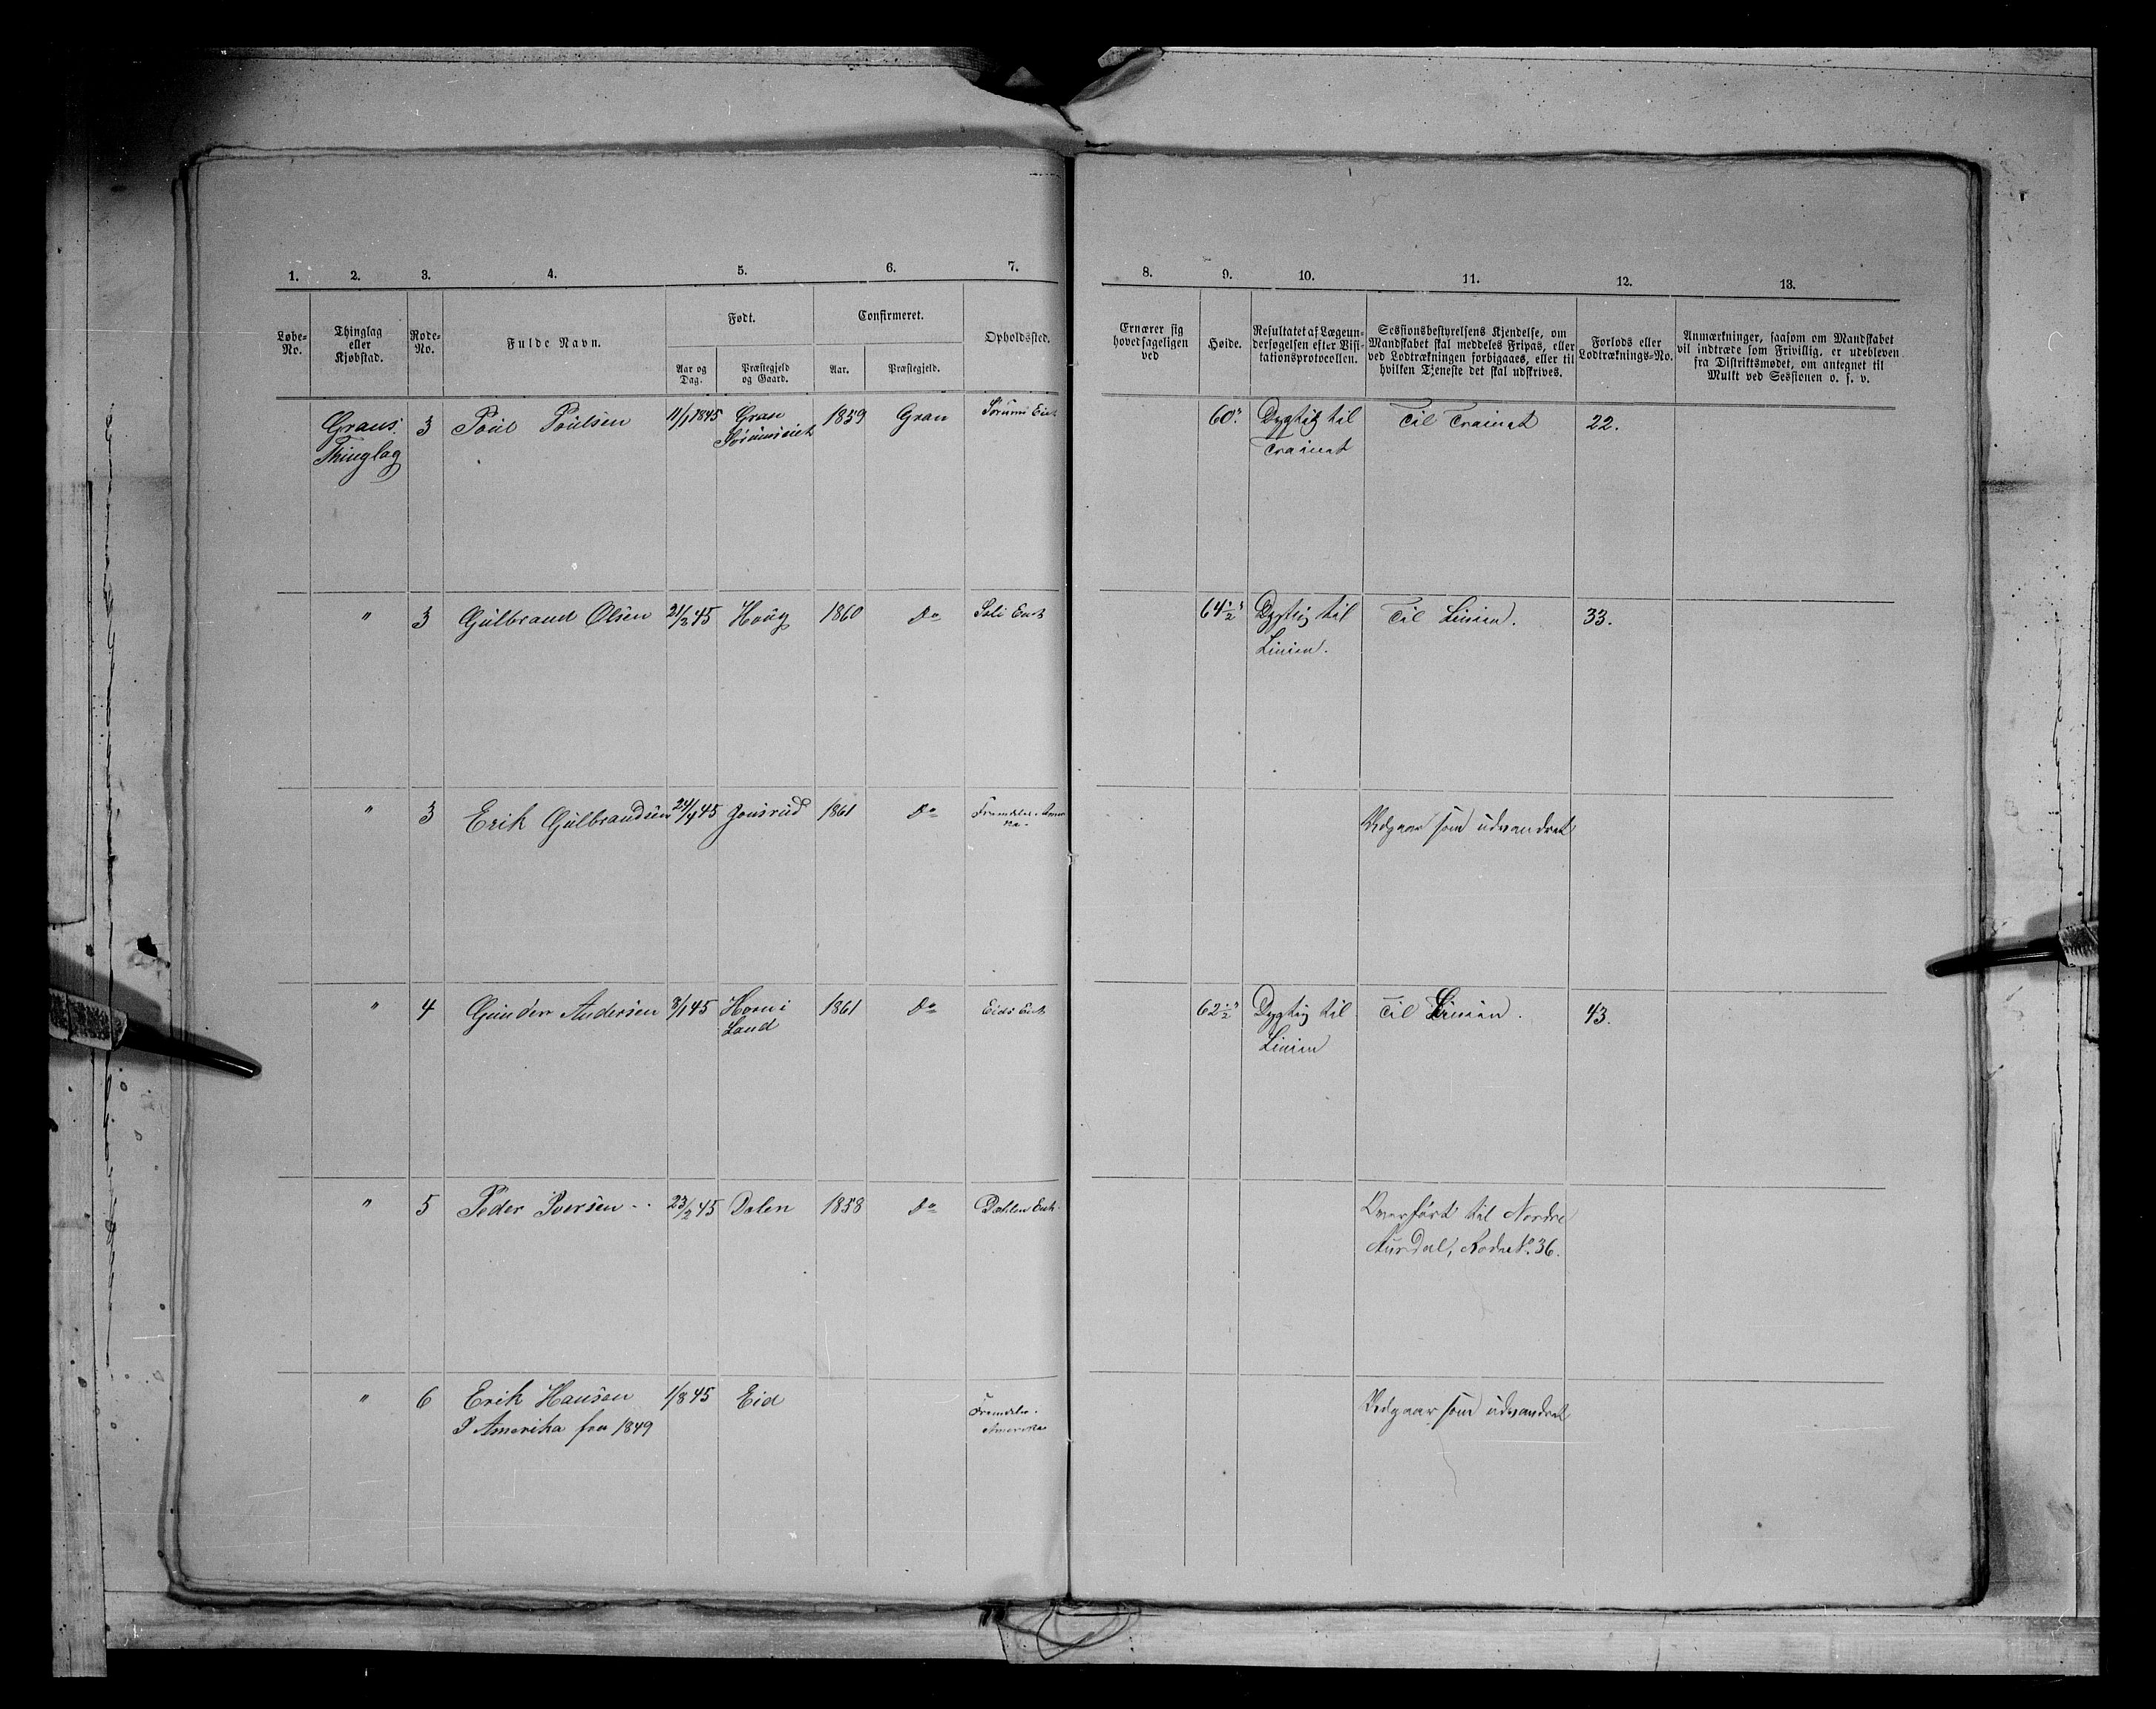 1. 2. 3. 4. 5. 6. 7. 8. 9. 10. 11. 12. 13.
Løbe-No. Thinglag eller Kjøbstad. Rode-No. Fulde Navn. Født. Confirmeret. Opholdssted.
Aar og Dag. Præstegjeld og Gaard. Aar. Præstegjeld.
Ernærer sig hovedsageligen ved
Høide.
Resultatet af Lægeundersøgelsen efter Visitationsprotocollen.
Sessionsbestyrelsens Kjendelse, om Mandskabet skal meddeles Fripas, eller ved Lodtrækningen forbigaaes, eller til hvilken Tjeneste det skal udskrives.
Forlods eller Lodtræknings-No.
Anmærkninger, saasom om Mandskabet vil indtræde som Frivillig, er udebleven fra Distriktsmødet, om antegnet til Mulkt ved Sessionen o. s. v.
Grans Thinglag 3 Poül Poülsen 11/1 1845 Gran Sørumseiet 1859 Gran Sørums Eie 60" Dygtig til Trainet Til Trainet 22.
" 3 Gülbrand Olsen 21/2 45 Haüg 1860 Do Eiet 64 1/2" Dygtig til Linien. Til Linien. 33.
" 3 Erik Gülbrandsen 24/4 45 Jonsrüd 1861 Do Udgaar som üdvandret
" 4 Günder Andersen 3/1 45 Horn i Land 1861 Do Eids Eiet 62 1/2" Dygtig til Linien Til Linien. 43.
" 5 Peder Iversen 23/2 45 Dalen 1858 Do Dæhlen Eiet Overført til Nordre Aurdal, Rode No. 36.
" 6 Erik Hansen 1/8 45 Eid Amerika Udgaar som üdvandret
I Amerika fra 1849